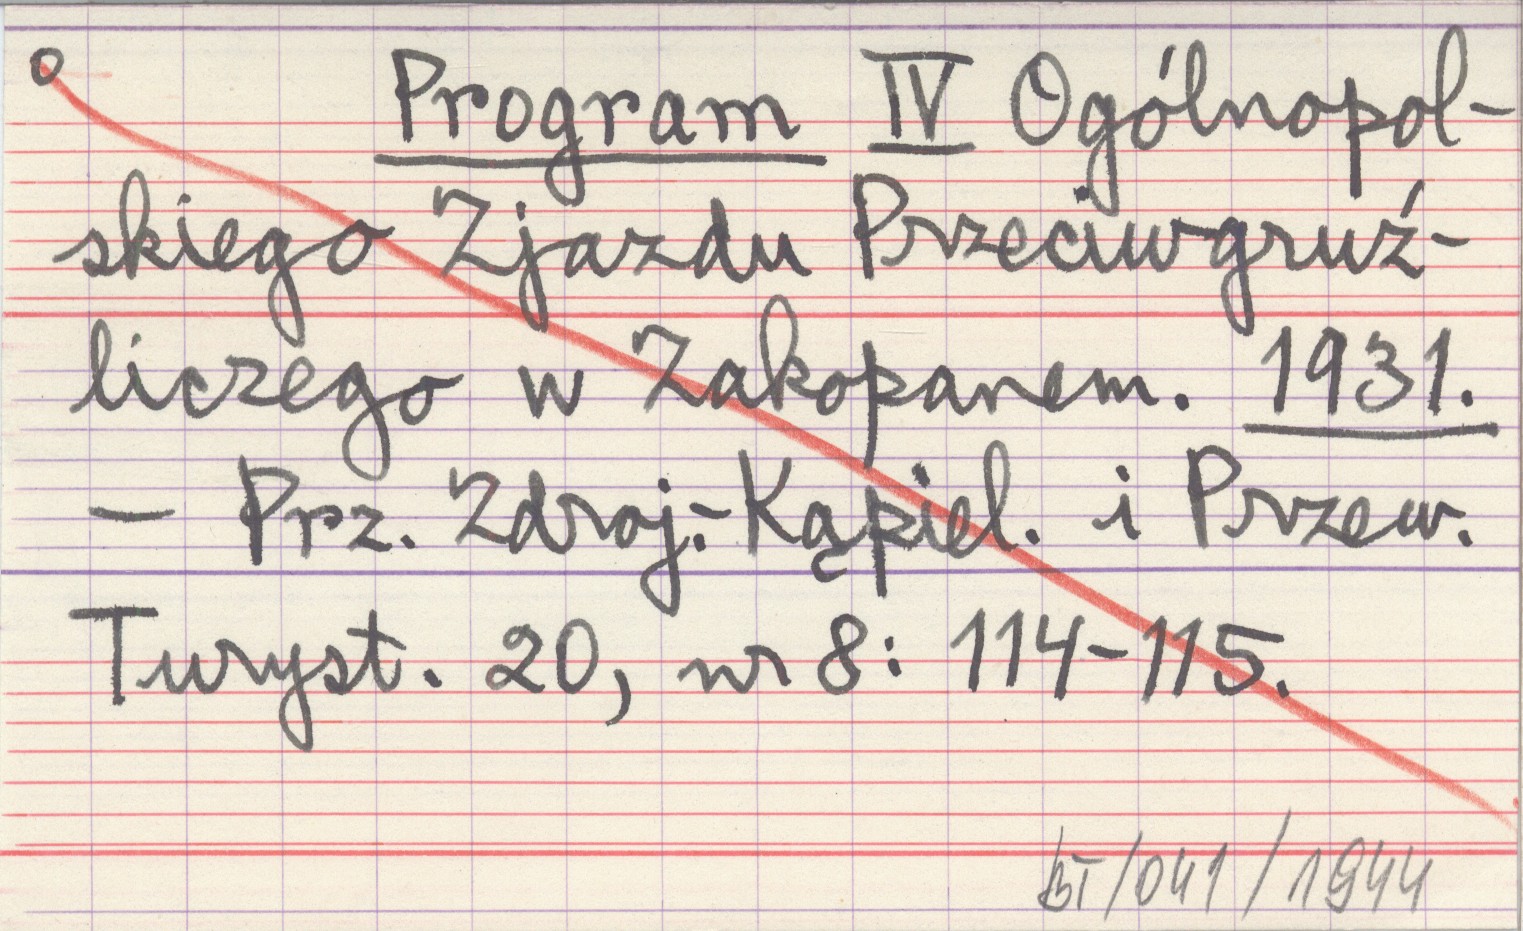 o Program IV Ogólnopol-
skiego Zjazdu Przeciwgruź-
liczego w Zakopanem. 1931.
— Prz. Zdroj.-Kąpiel. i Przew.
Turyst. 20, nr 8: 114-115.
BT/041/1944